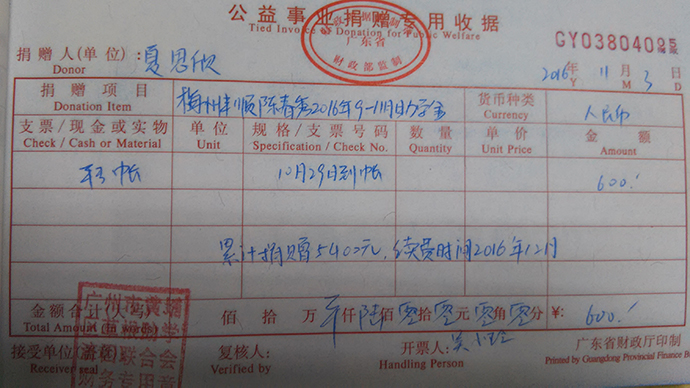 公益事业捐赠专用收据
Tied Invoice of Donation for Public Welfare
广东省
财政部监制
GY03804095
捐赠人(单位):夏思欣
Donor
2016年 11月 3日
Y M D
捐赠项目 梅州丰顺陈春秀2016年9-11月助学金 货币种类 人民币
Donation Item Currency
支票/现金或实物 单位 规格/支票号码 数量 单价 金额
Check / Cash or Material Unit Specification / Check No. Quantity Unit Price Amount
转帐 10月29日到帐 600.-
累计捐赠5400元,续费时间2016年12月
金额合计(大写) 佰 拾 万 仟陆佰零拾零元零角零分 ¥: 600.-
Total Amount (in words)
接受单位(盖章) 复核人: 开票人: 广东省财政厅印制
Receiver seal Verified by Handling Person Printed by Guangdong Provincial Finance Bureau
广州市黄埔
联合会
财务专用章